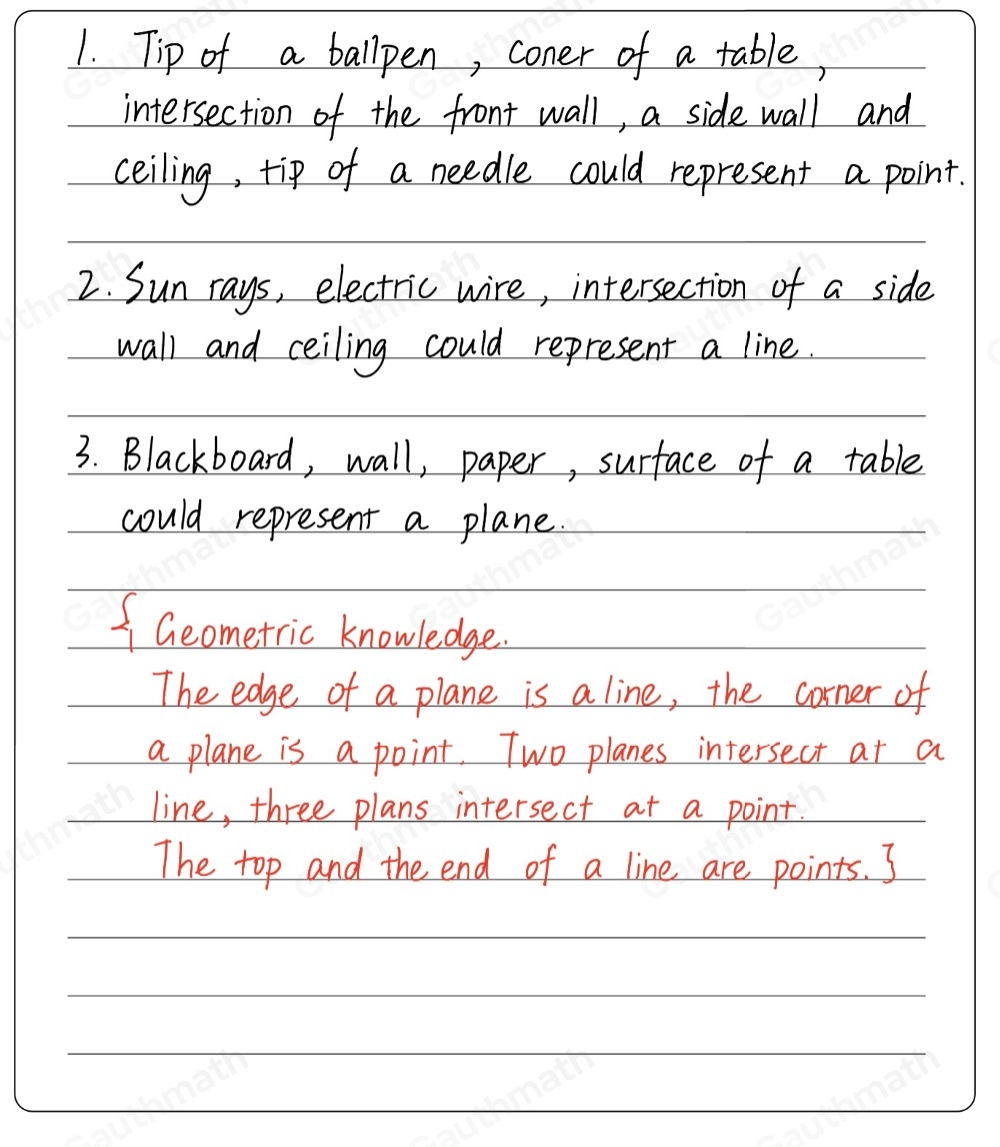 1. Tip of a ballpen, coner of a table,
intersection of the front wall, a side wall and
ceiling, tip of a needle could represent a point.
2. Sun rays, electric wire, intersection of a side
wall and ceiling could represent a line.
3. Blackboard, wall, paper, surface of a table
could represent a plane.
{ Geometric knowledge.
The edge of a plane is a line, the corner of
a plane is a point. Two planes intersect at a
line, three plans intersect at a point.
The top and the end of a line are points.}